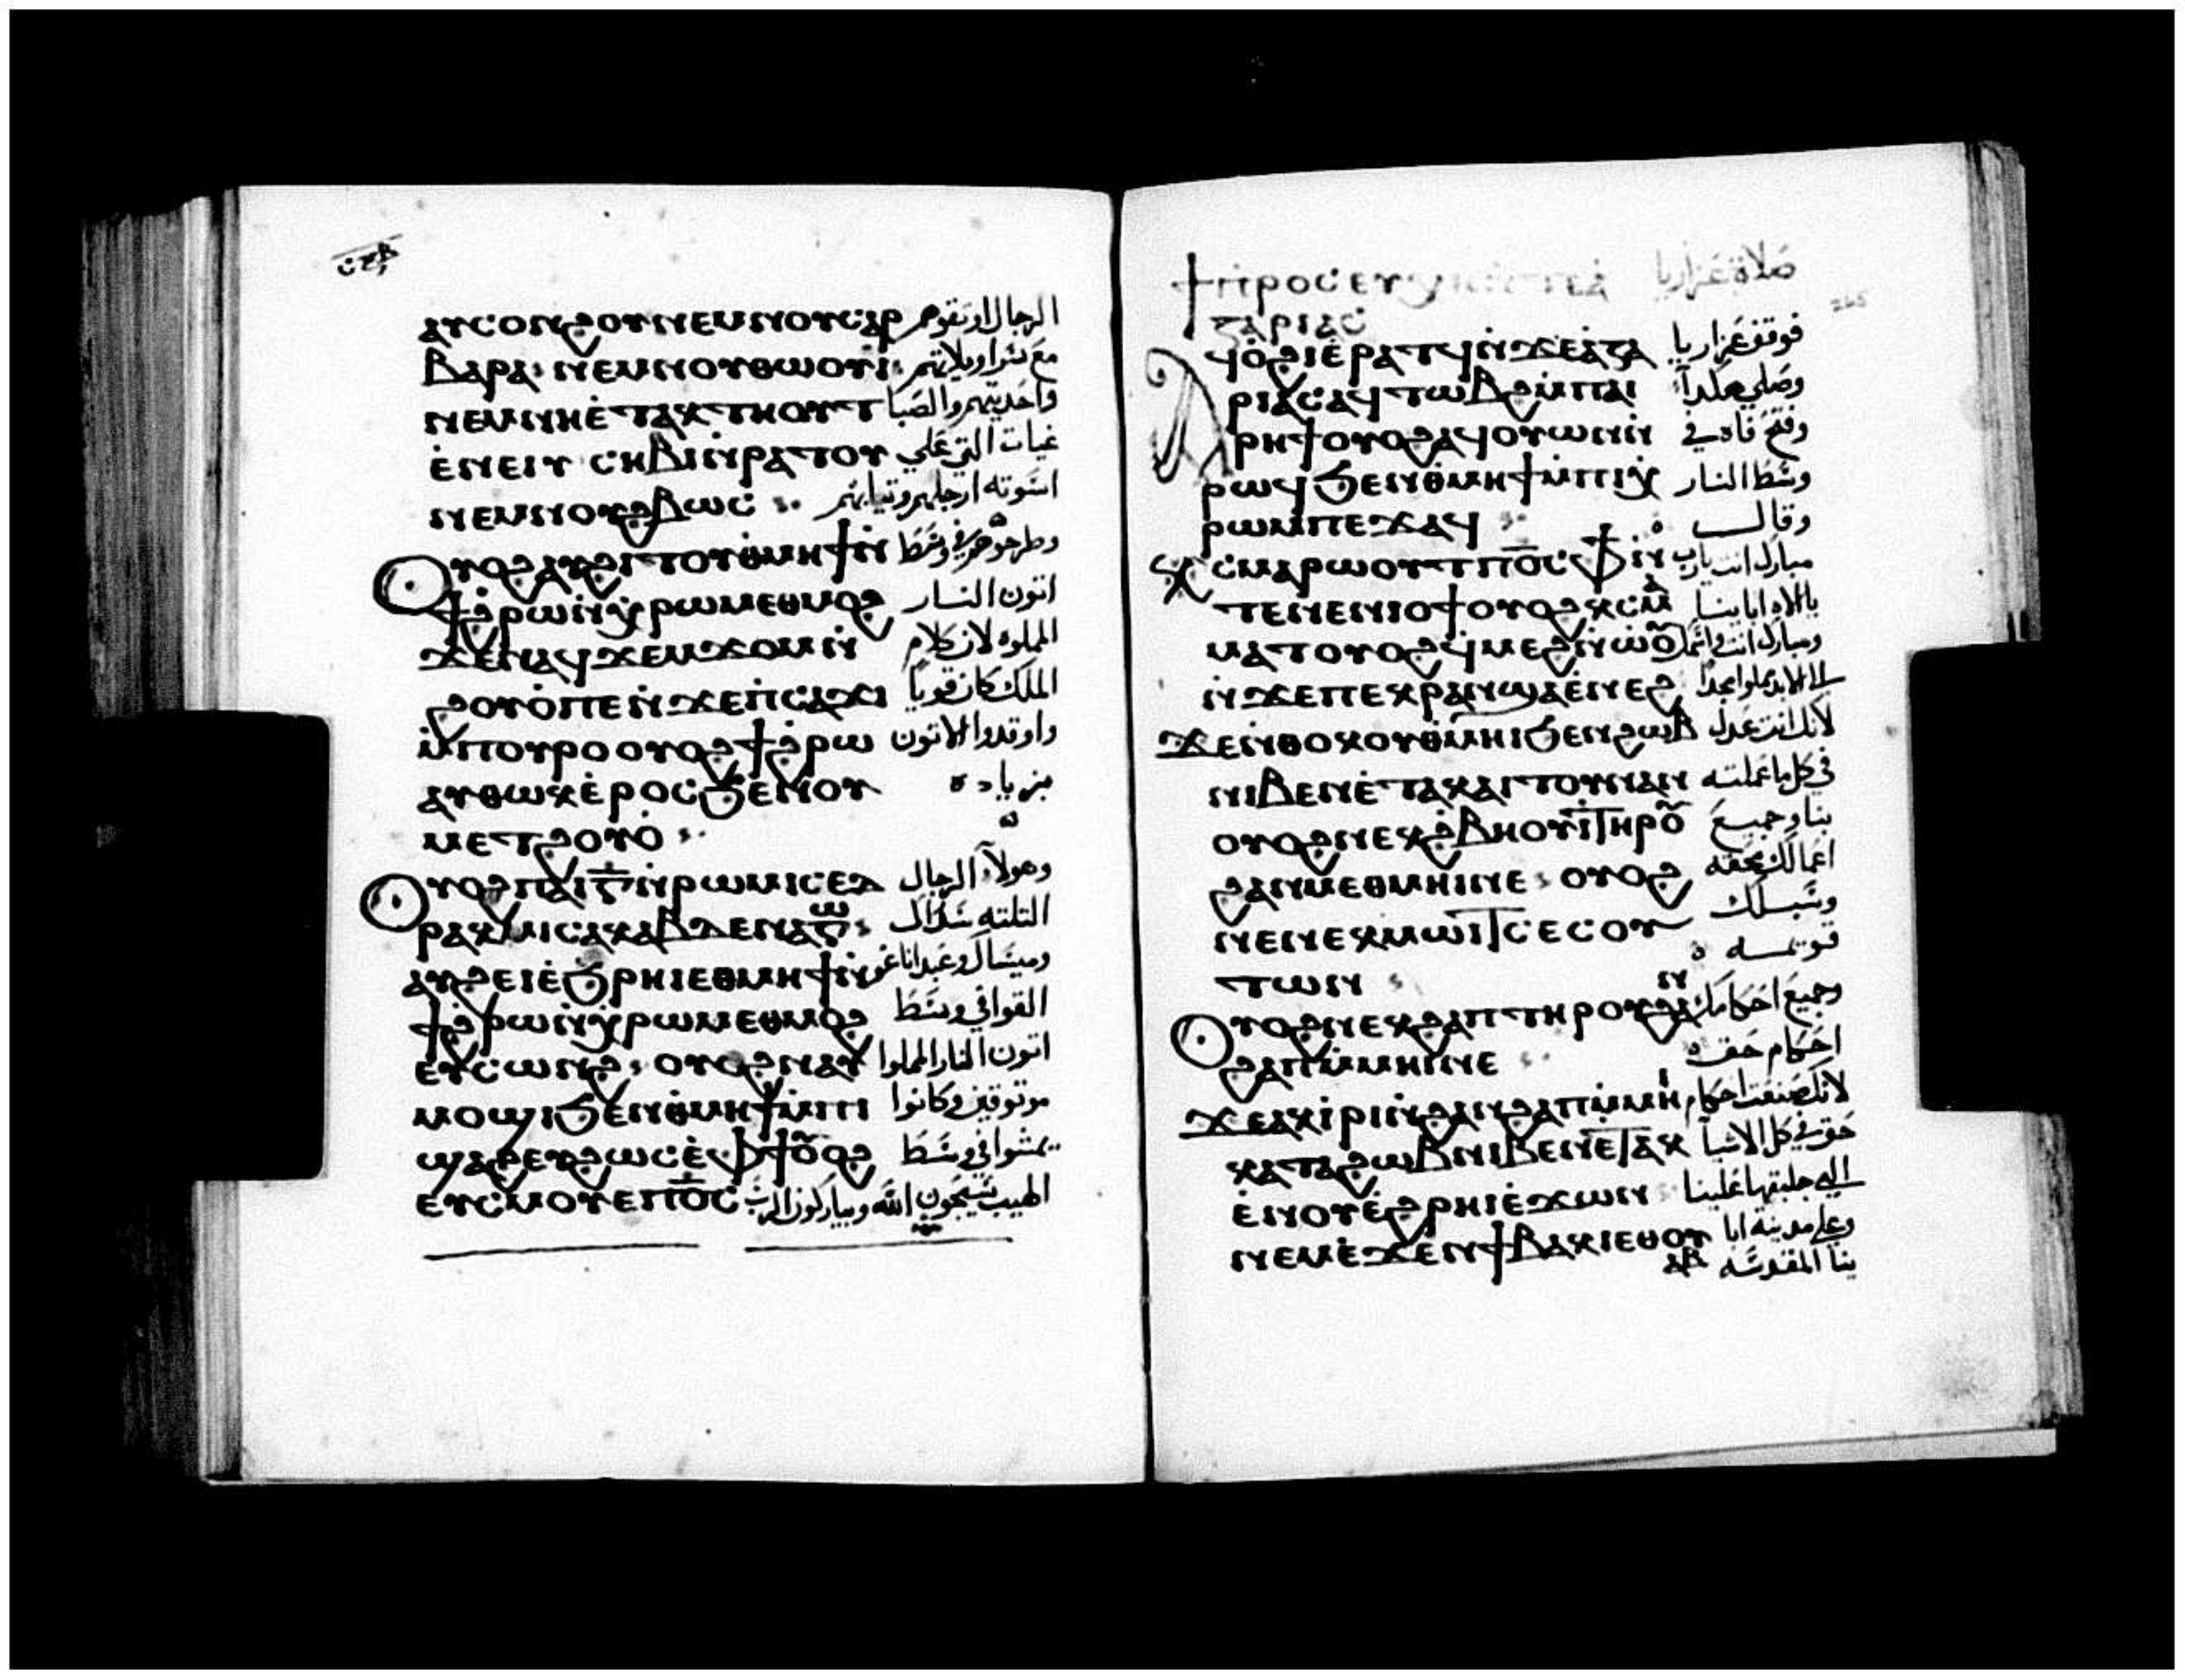 ⲁⲩⲥⲟⲛϩⲟⲩ ⲛⲉⲙ ⲛⲟⲩⲥⲁⲣ الرجال اوثقوهم
ⲃⲁⲣⲁ ⲛⲉⲙ ⲛⲟⲩⲑⲱⲟⲩⲓ مع
ⲛⲉⲙ ⲛⲏ ⲉ̀ⲧⲁⲕⲧⲏⲟⲩⲧ واحذيتهم والصبا
ⲉ̀ⲛⲉⲛ ⲥⲏⲃⲓ ⲛ̀ⲣⲁⲧⲟⲩ غيات التي علي
ⲛⲉⲙ ⲛⲟⲩϩⲃⲱⲥ ارجلهم وتيابهم
ⲟⲩⲟϩ ⲁⲩϩⲓⲧⲟⲩ ⲑ̀ⲙⲏϯ ⲛ̀ وطرحوهم في وسط
ϯϩ̀ⲣⲱ ⲛ̀ⲭ̀ⲣⲱⲙ ⲉⲑⲙⲟϩ اتون النار
ϫⲉ ⲛⲁϥϫⲉⲙϫⲟⲙ ⲛ̀ المملوه لان كلام
ϩⲟⲩⲟ̀ ⲡⲉ ⲛ̀ϫⲉ ⲡ̀ⲥⲁϫⲓ الملك كان قويا
ⲙ̀ⲡⲟⲩⲣⲟ ⲟⲩⲟϩ ϯϩ̀ⲣⲱ واوقدوا الاتون
ⲁⲩⲑⲱⲕ ⲉ̀ⲣⲟⲥ ϧⲉⲛ ⲟⲩ بزياده
ⲙⲉⲧϩⲟⲩⲟ̀
ⲟⲩⲟϩ ⲡⲁⲓ ⲅ̅ ⲛ̀ⲣⲱⲙⲓ ⲥⲉⲇ وهولآ الرجال
ⲣⲁⲕ ⲙⲓⲥⲁⲕ ⲁⲃⲇⲉⲛⲁⲅⲱ التلته سدراك
ⲁⲩϩⲉⲓ ⲉ̀ϧⲣⲏⲓ ⲉⲑⲙⲏϯ ⲛ̀ وميساك وعبداناغو
ϯϩ̀ⲣⲱ ⲛ̀ⲭ̀ⲣⲱⲙ ⲉⲑⲙⲟϩ القوا في وسط
ⲉⲩⲥⲱⲛϩ ⲟⲩⲟϩ ⲛⲁⲩ اتون النار المملوا
ⲙⲟϣⲓ ϧⲉⲛ ⲑ̀ⲙⲏϯ ⲙ̀ⲡⲓ موتوقين وكانوا
ϣⲁϩ ⲉⲩϩⲱⲥ ⲉ̀ⲫϯ ⲟⲩⲟϩ يمشوا في وسط
ⲉⲩⲥⲙⲟⲩ ⲉⲡ̅ⲟ̅ⲥ̅ اللهيب يسبحون الله ويباركون الرب
ϯⲡⲣⲟⲥⲉⲩⲭⲏ صلاة عزاريا
ⲍⲁⲣⲓⲁⲥ
ⲁϥⲟ̀ϩⲓ ⲉ̀ⲣⲁⲧϥ ⲛ̀ϫⲉ ⲁ̀ⲍⲁ فوقف عزاريا
ⲣⲓⲁⲥ ⲁϥⲧⲱⲃϩ ⲙ̀ⲡⲁⲓ وصلي هكدا
ⲣⲏϯ ⲟⲩⲟϩ ⲁϥⲟⲩⲱⲛ ⲛ̀ وفتح فاه في
ⲣⲱϥ ϧⲉⲛ ⲑ̀ⲙⲏϯ ⲙ̀ⲡⲓⲭ̀ وسط النار
ⲣⲱⲙ ⲡⲉϫⲁϥ وقال
ⲕ̀ⲥⲙⲁⲣⲱⲟⲩⲧ ⲡ̅ⲟ̅ⲥ̅ ⲫϯ ⲛ̀ مبارك انت يارب
ⲧⲉ ⲛⲉⲛⲓⲟϯ ⲟⲩⲟϩ ⲕ̀ⲥⲙⲁ يا الاه ابايينا
ⲙⲁⲧ ⲟⲩⲟϩ ϥ̀ⲙⲉϩ ⲛ̀ⲱ̀ⲟⲩ ومبارك انت واسمك
ⲛ̀ϫⲉ ⲡⲉⲕⲣⲁⲛ ϣⲁ ⲉ̀ⲛⲉϩ الي الابد مملوا مجدا
ϫⲉ ⲛ̀ⲑⲟⲕ ⲟⲩⲑ̀ⲙⲏⲓ ϧⲉⲛ ϩⲱⲃ لانك انت عدل
ⲛⲓⲃⲉⲛ ⲉ̀ⲧⲁⲕⲁⲓⲧⲟⲩ ⲛⲁⲛ في كل ما عملته
ⲟⲩⲟϩ ⲛⲉⲕϩ̀ⲃⲏⲟⲩⲓ̀ ⲧⲏⲣⲟⲩ بنا وجميع
ϩⲁⲛⲙⲉⲑⲙⲏⲓ ⲛⲉ ⲟⲩⲟϩ اعمالك بحقه
ⲛⲉⲛⲉⲕⲙⲱⲓⲧ ⲥⲉⲥⲟⲩ وسبلك
ⲧⲱⲛ
ⲟⲩⲟϩ ⲛⲉⲕϩⲁⲡ ⲧⲏⲣⲟⲩ ϩⲁⲛ وجميع احكامك
ϩⲁⲡ ⲙ̀ⲙⲏⲓ ⲛⲉ احكام حق
ϫⲉ ⲁⲕⲓ̀ⲣⲓ ⲛ̀ϩⲁⲛϩⲁⲡ ⲙ̀ⲙⲏⲓ لانك صنعت احكام
ⲕⲁⲧⲁ ϩⲱⲃ ⲛⲓⲃⲉⲛ ⲉⲧⲁⲕ حق في كل الاشيآ
ⲉ̀ⲛⲟⲩ ⲉ̀ϩⲣⲏⲓ ⲉ̀ϫⲱⲛ التي جلبتها علينا
ⲛⲉⲙ ⲉ̀ϫⲉⲛ ϯⲃⲁⲕⲓ ⲉⲑⲟⲩ وعلي مدينة ابا
ⲁⲃ ينا المقدسه